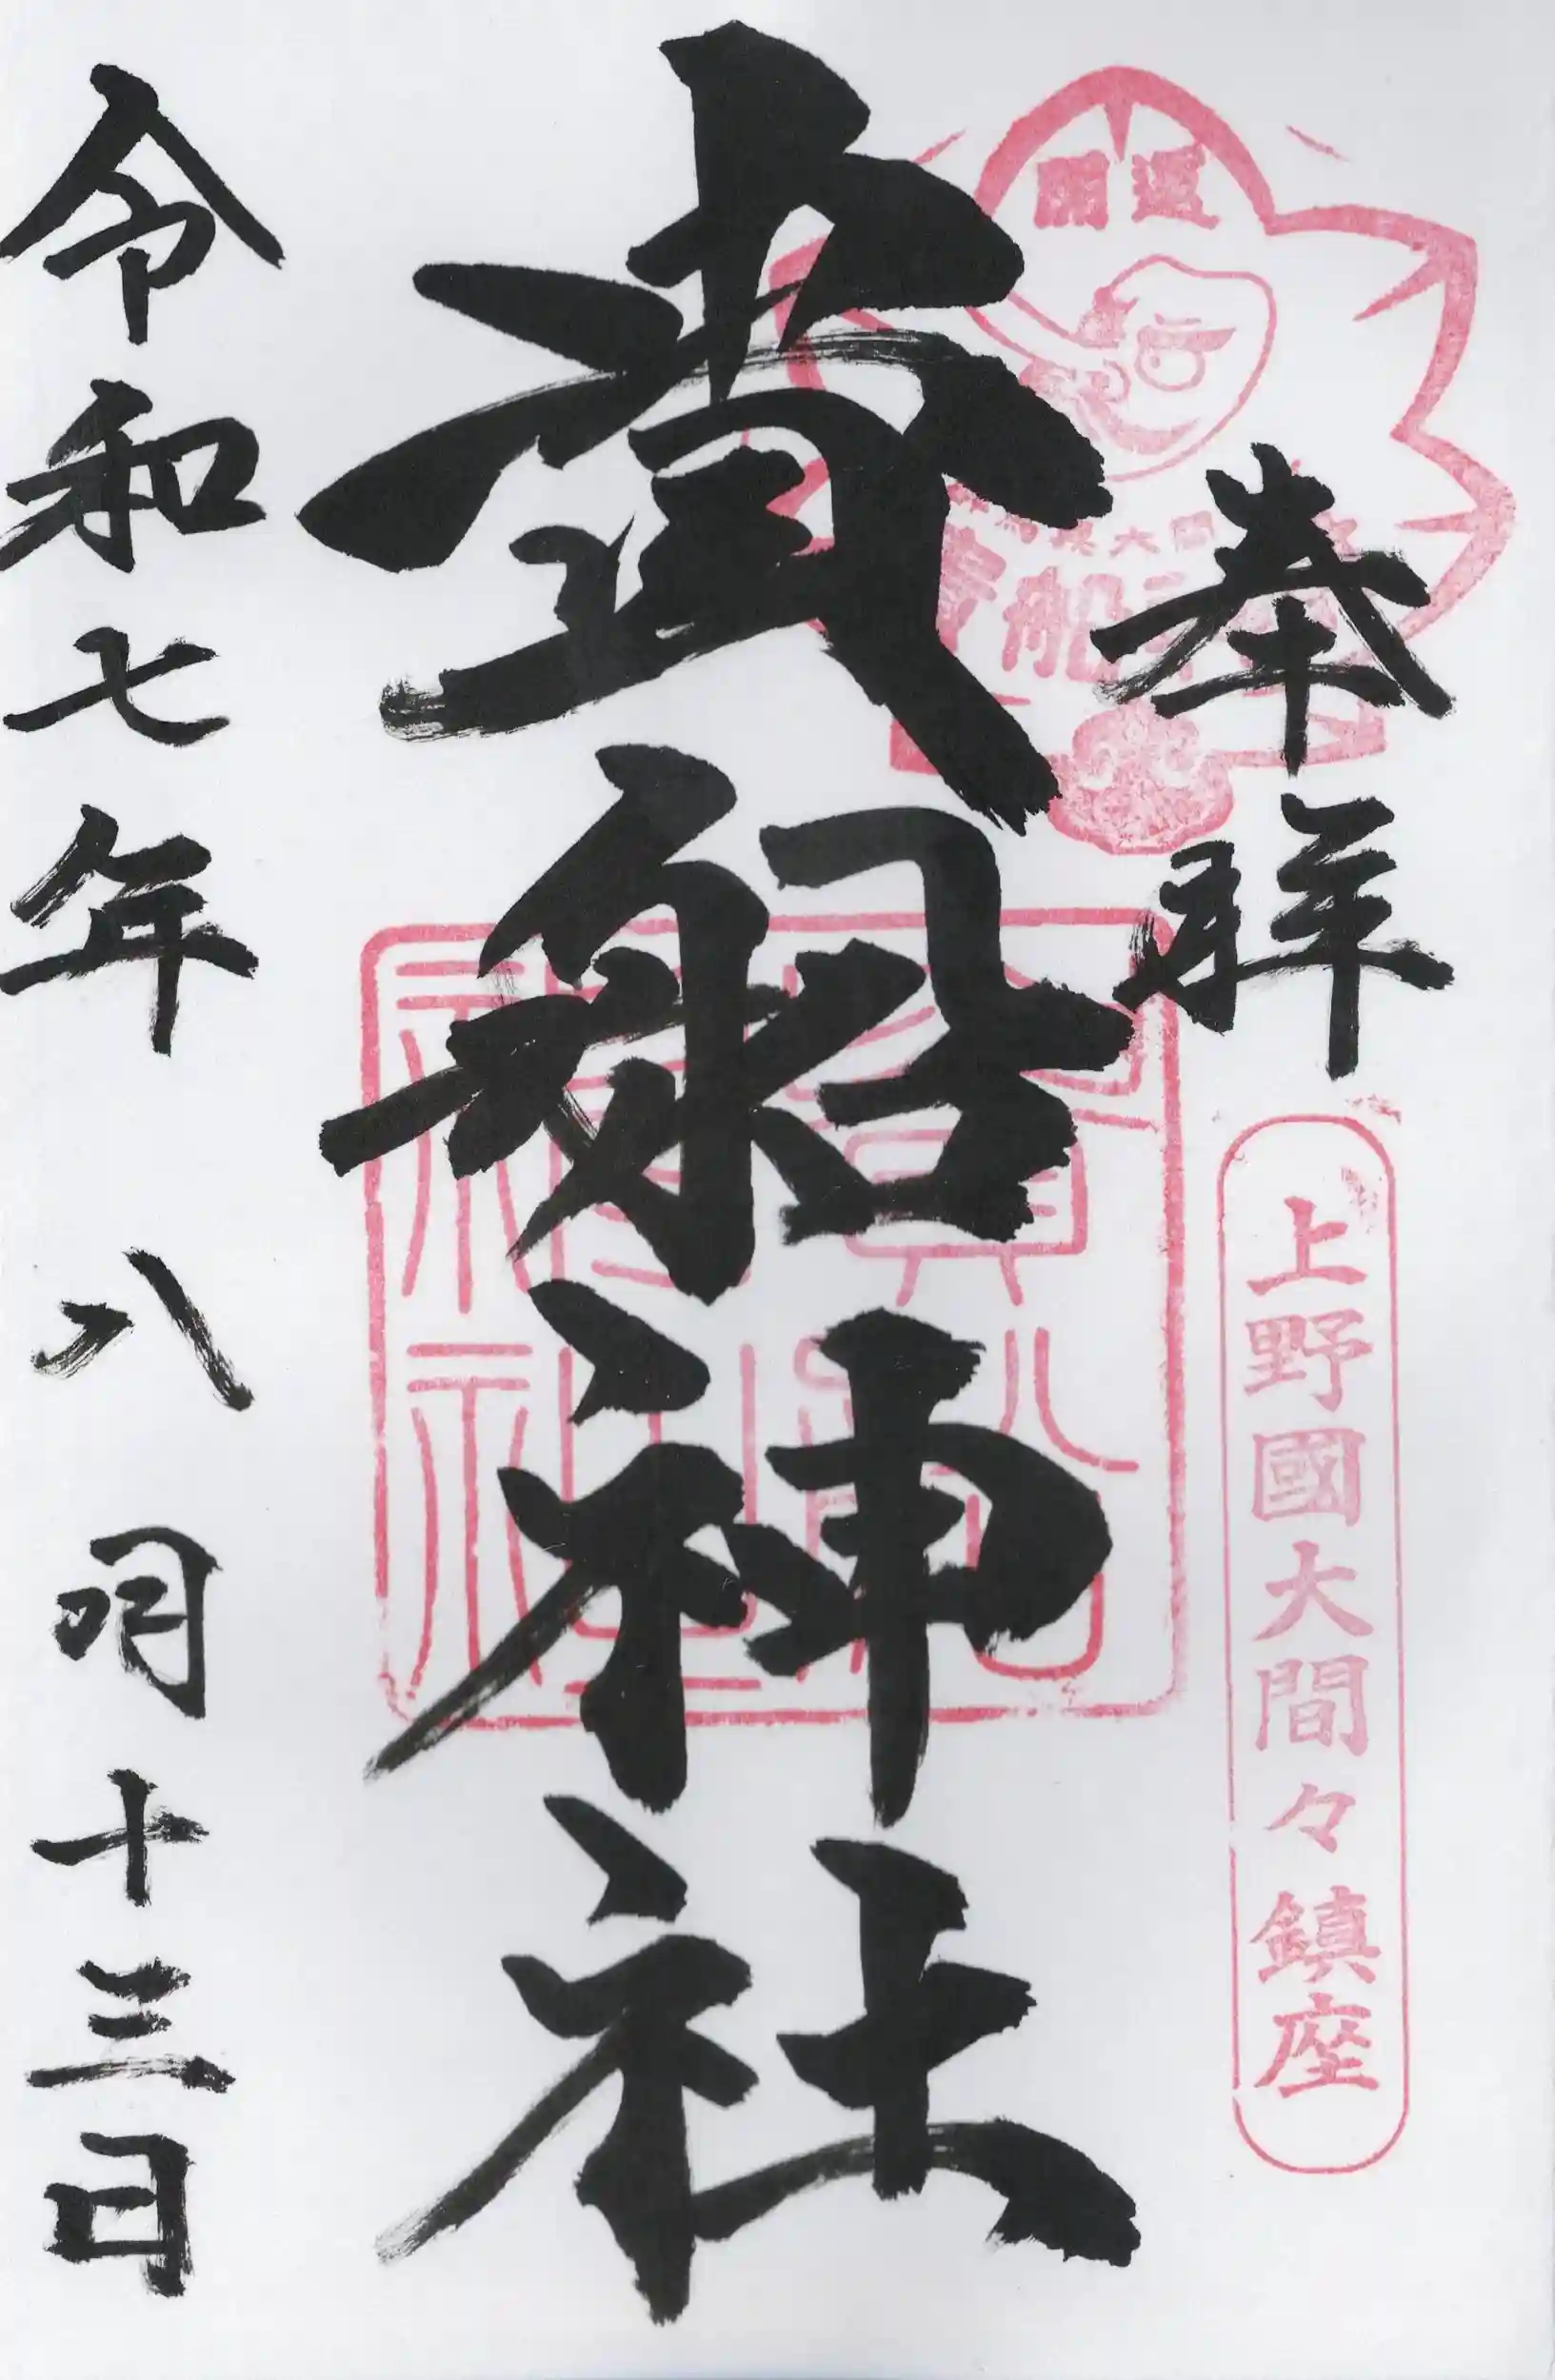 奉拝
開運
貴船神社
上野國大間々鎮座
貴船神社
貴船神社
令和七年 八月十三日